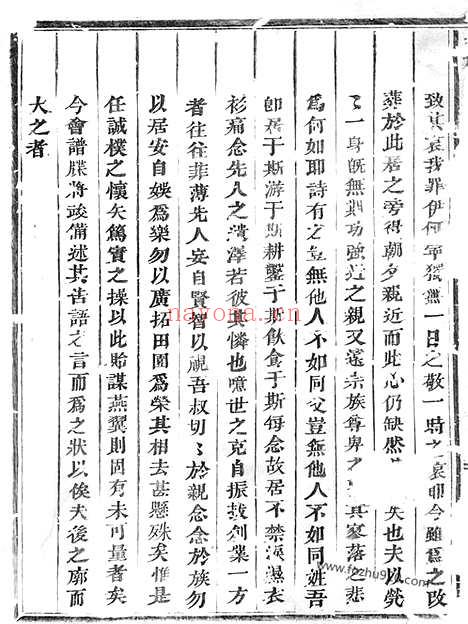 致其哀我罪伊何寧獨無一日之敬一時之哀即今雖爲之改
葬於此居之旁得朝夕親近而此心仍缺然 失也夫以煢
煢一身既無期功強近之親又遠宗族尊卑之 其寥落之悲
爲何如耶詩有之豈無他人不如同父豈無他人不如同姓吾
卽居于斯游于斯耕鑿于斯飲食于斯每念故居不禁淚濕衣
衫痛念先人之 澤若彼其憐也噫世之克自振拔創業一方
者往往菲薄先人妄自賢智以視吾叔切切於親念念於族勿
以居安自娛爲樂勿以廣拓田園爲榮其相去甚懸殊矣惟是
任誠樸之懷矢篤實之操以此貽謀燕翼則固有未可量者矣
今會譜牒將竣備述其告語之言而爲之狀以俟夫後之廓而
大之者
nayona.cn
www.fozhu920.com